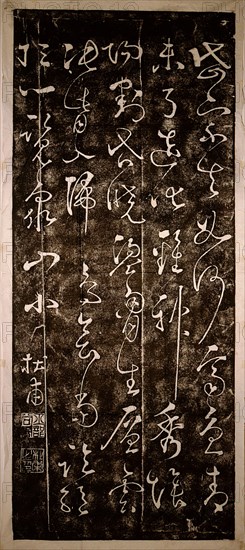 岱宗夫如何齊魯青
未了造化鍾神秀陰
陽割昏曉盪胸生層雲
決眥入歸鳥會當凌絕
頂一覽衆山小 杜甫